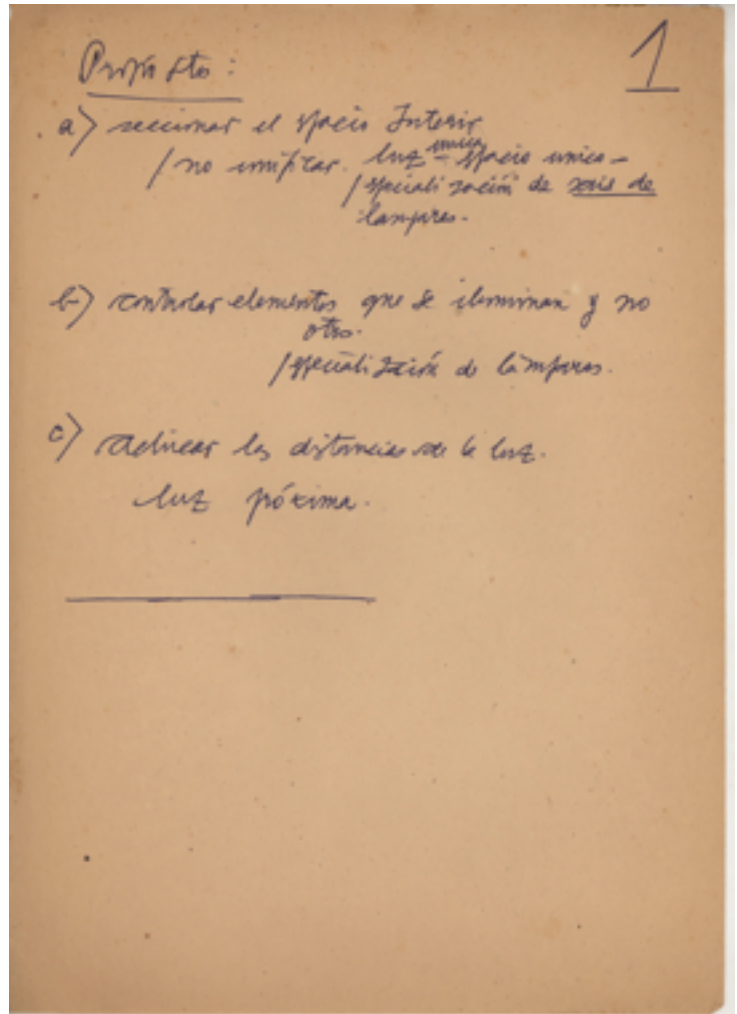 1
Propósito:
a) seccionar el espacio Interior
/ no unificar. luz única = espacio unico -
/ especialización de serie de
lamparas.
b) controlar elementos que se iluminan y no
otros.
/ especialización de lámparas.
c) adecuar las distancias de la luz.
luz próxima.